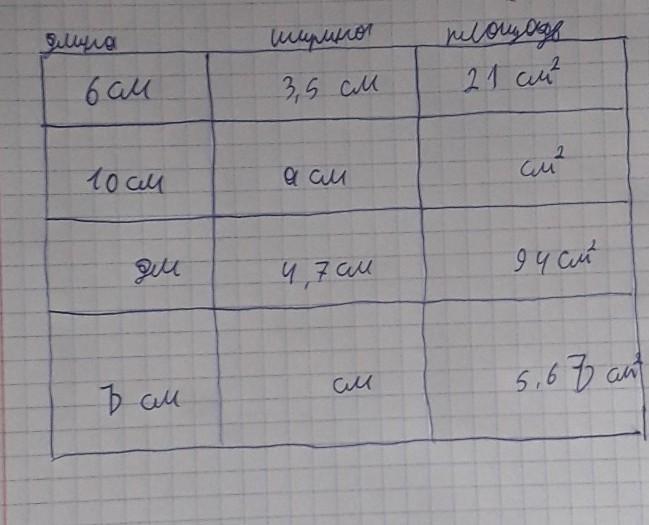 длина ширина площадь
6 см 3,5 см 21 см²
10 см a см см²
дм 4,7 см 94 см²
b см см 5,6 b см²